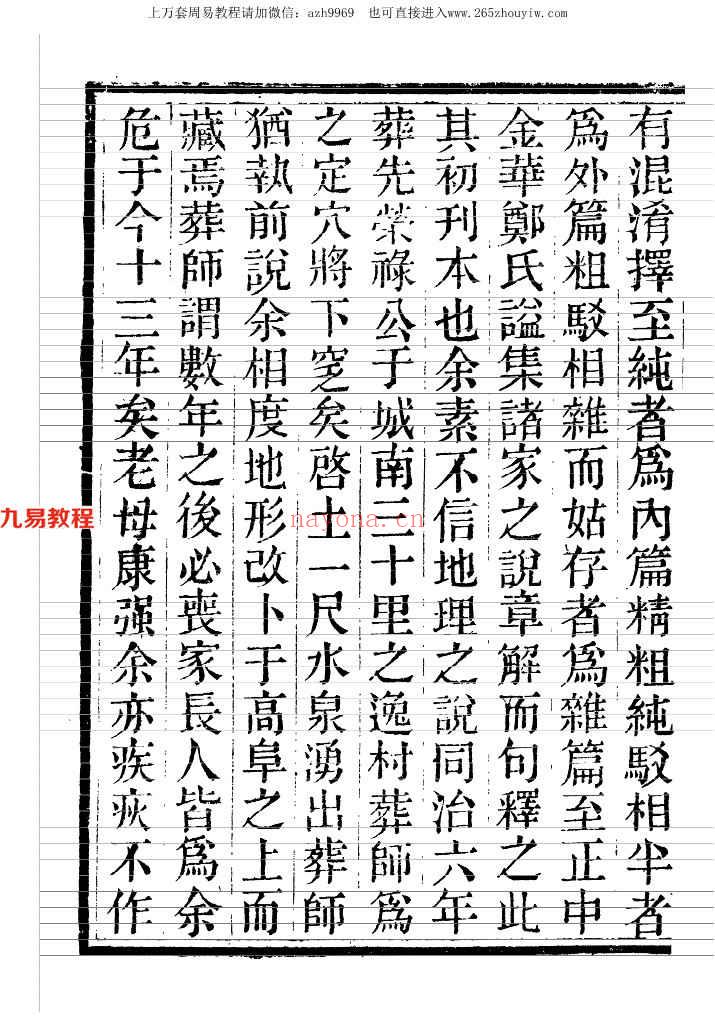 上万套周易教程请加微信：azh9969　也可直接进入www.265zhouyiw.com
有混淆擇至純者爲內篇精粗純駁相半者
爲外篇粗駁相雜而姑存者爲雜篇至正中
金華鄭氏謚集諸家之說章解而句釋之此
其初刊本也余素不信地理之說同治六年
葬先榮祿公于城南三十里之逸村葬師爲
之定穴將下窆矣啓土一尺水泉湧出葬師
猶執前說余相度地形改卜于高阜之上而
藏焉葬師謂數年之後必喪家長人皆爲余
危于今十三年矣老母康强余亦疾疢不作
九易教程
nayona.cn